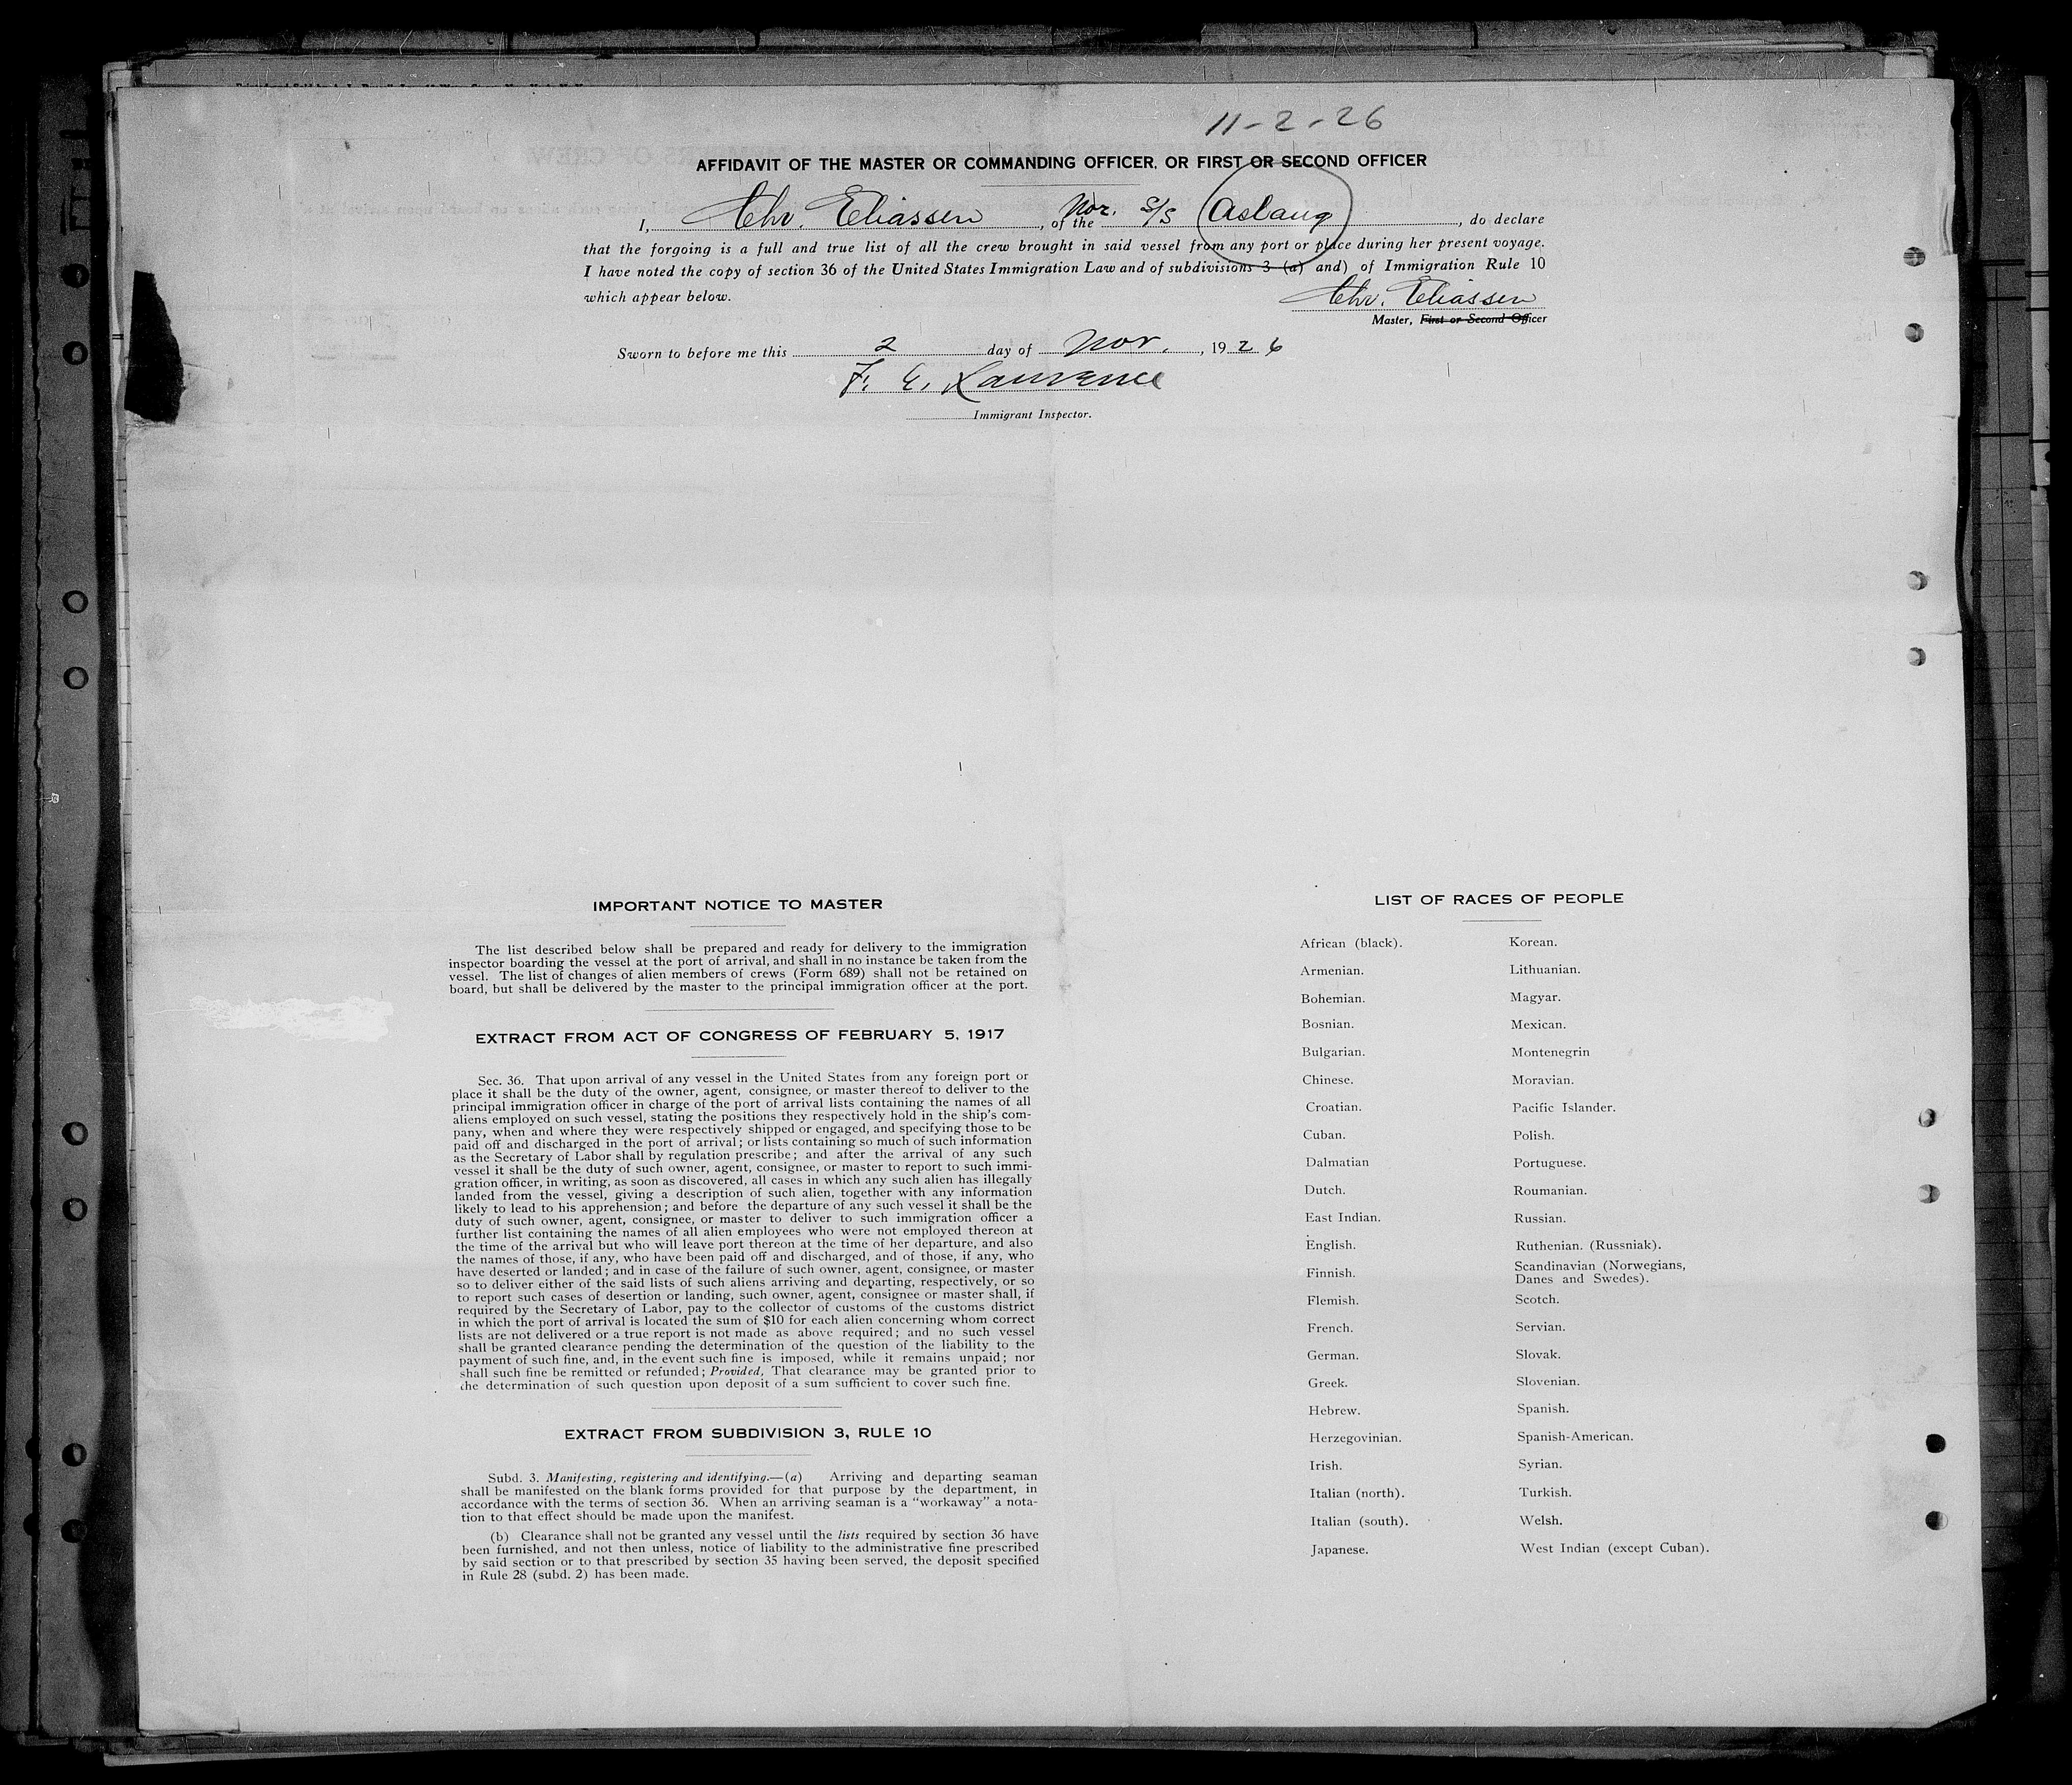 11-2-26
AFFIDAVIT OF THE MASTER OR COMMANDING OFFICER, OR FIRST OR SECOND OFFICER
I, Chr. Eliassen, of the Nor. S/S Aslaug, do declare
that the forgoing is a full and true list of all the crew brought in said vessel from any port or place during her present voyage.
I have noted the copy of section 36 of the United States Immigration Law and of subdivisions 3 (a) and) of Immigration Rule 10
which appear below.
Chr. Eliassen
Master, First or Second Officer
Sworn to before me this 2 day of Nov., 1926
F. E. Lawrence
Immigrant Inspector.
IMPORTANT NOTICE TO MASTER
The list described below shall be prepared and ready for delivery to the immigration
inspector boarding the vessel at the port of arrival, and shall in no instance be taken from the
vessel. The list of changes of alien members of crews (Form 689) shall not be retained on
board, but shall be delivered by the master to the principal immigration officer at the port.
EXTRACT FROM ACT OF CONGRESS OF FEBRUARY 5, 1917
Sec. 36. That upon arrival of any vessel in the United States from any foreign port or
place it shall be the duty of the owner, agent, consignee, or master thereof to deliver to the
principal immigration officer in charge of the port of arrival lists containing the names of all
aliens employed on such vessel, stating the positions they respectively hold in the ship's com-
pany, when and where they were respectively shipped or engaged, and specifying those to be
paid off and discharged in the port of arrival; or lists containing so much of such information
as the Secretary of Labor shall by regulation prescribe; and after the arrival of any such
vessel it shall be the duty of such owner, agent, consignee, or master to report to such immi-
gration officer, in writing, as soon as discovered, all cases in which any such alien has illegally
landed from the vessel, giving a description of such alien, together with any information
likely to lead to his apprehension; and before the departure of any such vessel it shall be the
duty of such owner, agent, consignee, or master to deliver to such immigration officer a
further list containing the names of all alien employees who were not employed thereon at
the time of the arrival but who will leave port thereon at the time of her departure, and also
the names of those, if any, who have been paid off and discharged, and of those, if any, who
have deserted or landed; and in case of the failure of such owner, agent, consignee, or master
so to deliver either of the said lists of such aliens arriving and departing, respectively, or so
to report such cases of desertion or landing, such owner, agent, consignee or master shall, if
required by the Secretary of Labor, pay to the collector of customs of the customs district
in which the port of arrival is located the sum of $10 for each alien concerning whom correct
lists are not delivered or a true report is not made as above required; and no such vessel
shall be granted clearance pending the determination of the question of the liability to the
payment of such fine, and, in the event such fine is imposed, while it remains unpaid; nor
shall such fine be remitted or refunded; Provided, That clearance may be granted prior to
the determination of such question upon deposit of a sum sufficient to cover such fine.
EXTRACT FROM SUBDIVISION 3, RULE 10
Subd. 3. Manifesting, registering and identifying.—(a) Arriving and departing seaman
shall be manifested on the blank forms provided for that purpose by the department, in
accordance with the terms of section 36. When an arriving seaman is a "workaway" a nota-
tion to that effect should be made upon the manifest.
(b) Clearance shall not be granted any vessel until the lists required by section 36 have
been furnished, and not then unless, notice of liability to the administrative fine prescribed
by said section or to that prescribed by section 35 having been served, the deposit specified
in Rule 28 (subd. 2) has been made.
LIST OF RACES OF PEOPLE
African (black).
Armenian.
Bohemian.
Bosnian.
Bulgarian.
Chinese.
Croatian.
Cuban.
Dalmatian
Dutch.
East Indian.
English.
Finnish.
Flemish.
French.
German.
Greek.
Hebrew.
Herzegovinian.
Irish.
Italian (north).
Italian (south).
Japanese.
Korean.
Lithuanian.
Magyar.
Mexican.
Montenegrin
Moravian.
Pacific Islander.
Polish.
Portuguese.
Roumanian.
Russian.
Ruthenian. (Russniak).
Scandinavian (Norwegians,
Danes and Swedes).
Scotch.
Servian.
Slovak.
Slovenian.
Spanish.
Spanish-American.
Syrian.
Turkish.
Welsh.
West Indian (except Cuban).